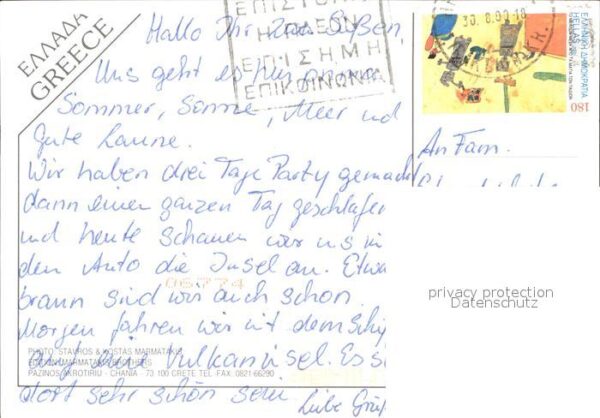 ΕΛΛΑΔΑ
GREECE
ΕΠΙΣΤΟΛΗ
ΗΠΛΕΟΝ
ΕΠΙΣΗΜΗ
ΕΠΙΚΟΙΝΩΝΙΑ
30.8.00-18
ΕΛΛΗΝΙΚΗ ΔΗΜΟΚΡΑΤΙΑ
HELLAS
180
Hallo Ihr Zwei Süßen,
Uns geht es prima
Sommer, Sonne, Meer und
gute Laune.
Wir haben drei Tage Party gemacht
dann einen ganzen Tag geschlafen
und heute schauen wir uns in
den Auto die Insel an. Etwa
braun sind wir auch schon.
Morgen fahren wir mit dem Schif
auf eine Vulkaninsel. Es s
dort sehr schön sein.
Liebe Grüß
An Fam.
06774
PHOTO: STAVROS & KOSTAS MARMATAKIS
EDITION MARMATAKIS BROTHERS
PAZINOS AKROTIRIU - CHANIA - 73 100 CRETE TEL. FAX: 0821-66290
privacy protection
Datenschutz